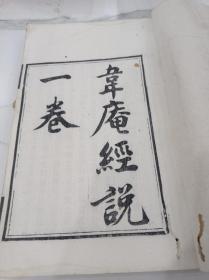 韋庵經說
一卷